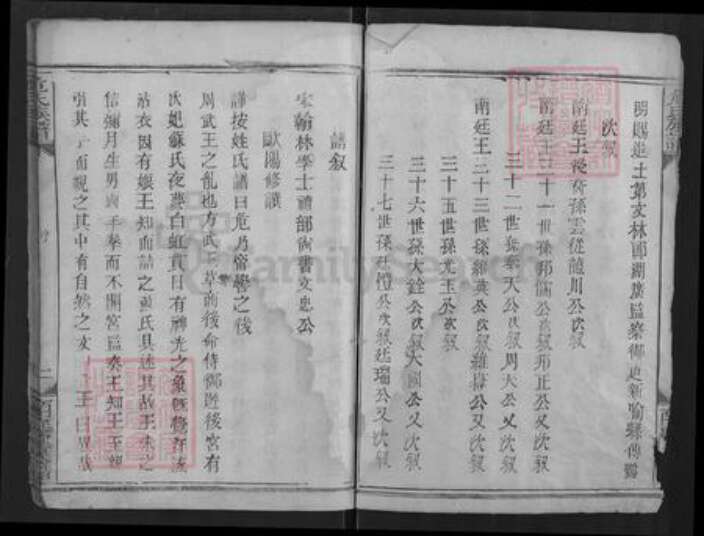 明賜進士第文林郎湖廣監察御史新喻縣傅
次叙
南廷王從孫雲從隨川公次叙
南廷王三十一世孫邦儒公次叙邦正公又次叙
三十二世孫萊天公次叙周大公又次叙
南廷王三十三世孫維英公次叙維壽公又次叙
三十五世孫尤玉公次叙
三十六世孫大銓公次叙大圓公又次叙
三十七世孫廷燈公次叙廷瑞公又次叙
譜叙
宋翰林學士禮部尚書文忠公
歐陽修譔
謹按姓氏譜曰危乃帝嚳之後
周武王之亂也方武王草創後命侍御遊後宮有
次妃蘇氏夜夢白虹貫日有神光之象旣覺在
衣因有娠王知而詰之蘇氏具述其故王珠之
信彌月生男兩手拳而不開宮監奏王知王至親
其手而視之其中有自然之文王曰異哉
FamilySearch